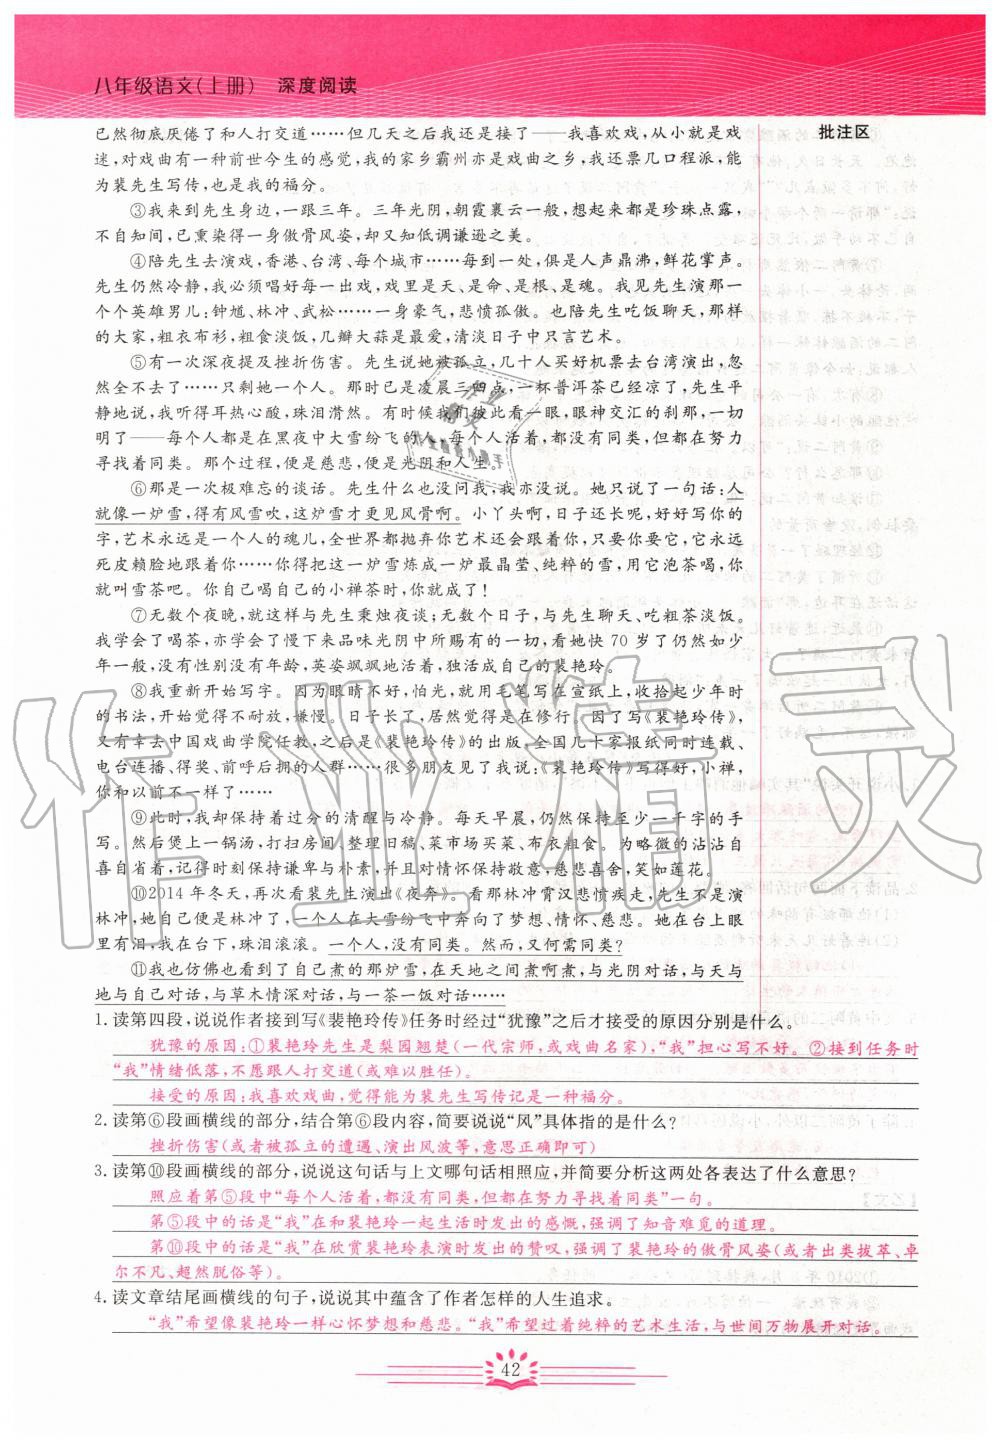 八年级语文(上册) 深度阅读
批注区
已然彻底厌倦了和人打交道……但几天之后我还是接了——我喜欢戏,从小就是戏
迷,对戏曲有一种前世今生的感觉,我的家乡霸州亦是戏曲之乡,我还票几口程派,能
为裴先生写传,也是我的福分。
③我来到先生身边,一跟三年。三年光阴,朝霞裹云一般,想起来都是珍珠点露,
不自知间,已熏染得一身傲骨风姿,却又知低调谦逊之美。
④陪先生去演戏,香港、台湾、每个城市……每到一处,俱是人声鼎沸,鲜花掌声。
先生仍然冷静,我必须唱好每一出戏,戏里是天、是命、是根、是魂。我见先生演那一
个个英雄男儿:钟馗、林冲、武松……一身豪气,悲愤孤傲。也陪先生吃饭聊天,那样
的大家,粗衣布衫,粗食淡饭,几瓣大蒜是最爱,清淡日子中只言艺术。
⑤有一次深夜提及挫折伤害。先生说她被孤立,几十人买好机票去台湾演出,忽
然全不去了……只剩她一个人。那时已是凌晨三四点,一杯普洱茶已经凉了,先生平
静地说,我听得耳热心酸,珠泪潸然。有时候我们彼此看一眼,眼神交汇的刹那,一切
明了——每个人都是在黑夜中大雪纷飞的人,每个人活着,都没有同类,但都在努力
寻找着同类。这过程,便是慈悲,便是光阴和人生。
⑥那是一次极难忘的谈话。先生什么也没问我,我亦没说。她只说了一句话:人
就像一炉雪,得有风雪吹,这炉雪才更见风骨啊。小丫头啊,日子还长呢,好好写你的
字,艺术永远是一个人的魂儿,全世界都抛弃你艺术还会跟着你,只要你要它,它永远
死皮赖脸地跟着你……你得把这一炉雪炼成一炉最晶莹、纯粹的雪,用它泡茶喝,你
就叫雪茶吧。你自己喝自己的小禅茶时,你就成了!
⑦无数个夜晚,就这样与先生秉烛夜谈;无数个日子,与先生聊天、吃粗茶淡饭。
我学会了喝茶,亦学会了慢下来品味光阴中所赐有的一切,看她快 70 岁了仍然如少
年一般,没有性别没有年龄,英姿飒飒地活着,独活成自己的裴艳玲。
⑧我重新开始写字。因为眼睛不好,怕光,就用毛笔写在宣纸上,收拾起少年时
的书法,开始觉得不耐放,嫌慢。日子长了,居然觉得是在修行。因了写《裴艳玲传》,
又有幸去中国戏曲学院任教,之后是《裴艳玲传》的出版,全国几十家报纸同时连载、
电台连播、得奖、前呼后拥的人群……很多朋友见了我说:《裴艳玲传》写得好,小禅,
你和以前不一样了……
⑨此时,我却保持着过分的清醒与冷静。每天早晨,仍然保持至少一千字的手
写。然后煲上一锅汤,打扫房间、整理旧稿、菜市场买菜、布衣粗食。为略微的沾沾自
喜自省着,记得时刻保持谦卑与朴素,并且对情怀保持敬意,慈悲喜舍,笑如莲花。
⑩2014 年冬天,再次看裴先生演出《夜奔》。看那林冲霄汉悲愤疾走,先生不是演
林冲,她自己便是林冲了,一个人在大雪纷飞中奔向了梦想、情怀、慈悲。她在台上眼
里有泪,我在台下,珠泪滚滚。一个人,没有同类。然而,又何需同类?
⑪我也仿佛也看到了自己煮的那炉雪,在天地之间煮啊煮,与光阴对话,与天与
地与自己对话,与草木情深对话,与一茶一饭对话……
1. 读第四段,说说作者接到写《裴艳玲传》任务时经过“犹豫”之后才接受的原因分别是什么。
犹豫的原因:①裴艳玲先生是梨园翘楚(一代宗师,或戏曲名家),“我”担心写不好。②接到任务时
“我”情绪低落,不愿跟人打交道(或难以胜任)。
接受的原因:我喜欢戏曲,觉得能为裴先生写传记是一种福分。
2. 读第⑥段画横线的部分,结合第⑥段内容,简要说说“风”具体指的是什么?
挫折伤害(或者被孤立的遭遇、演出风波等,意思正确即可)
3. 读第⑩段画横线的部分,说说这句话与上文哪句话相照应,并简要分析这两处各表达了什么意思?
照应着第⑤段中“每个人活着,都没有同类,但都在努力寻找着同类”一句。
第⑤段中的话是“我”在和裴艳玲一起生活时发出的感慨,强调了知音难觅的道理。
第⑩段中的话是“我”在欣赏裴艳玲表演时发出的赞叹,强调了裴艳玲的傲骨风姿(或者出类拔萃、卓
尔不凡、超然脱俗等)。
4. 读文章结尾画横线的句子,说说其中蕴含了作者怎样的人生追求。
“我”希望像裴艳玲一样心怀梦想和慈悲。“我”希望过着纯粹的艺术生活,与世间万物展开对话。
42
作业精灵